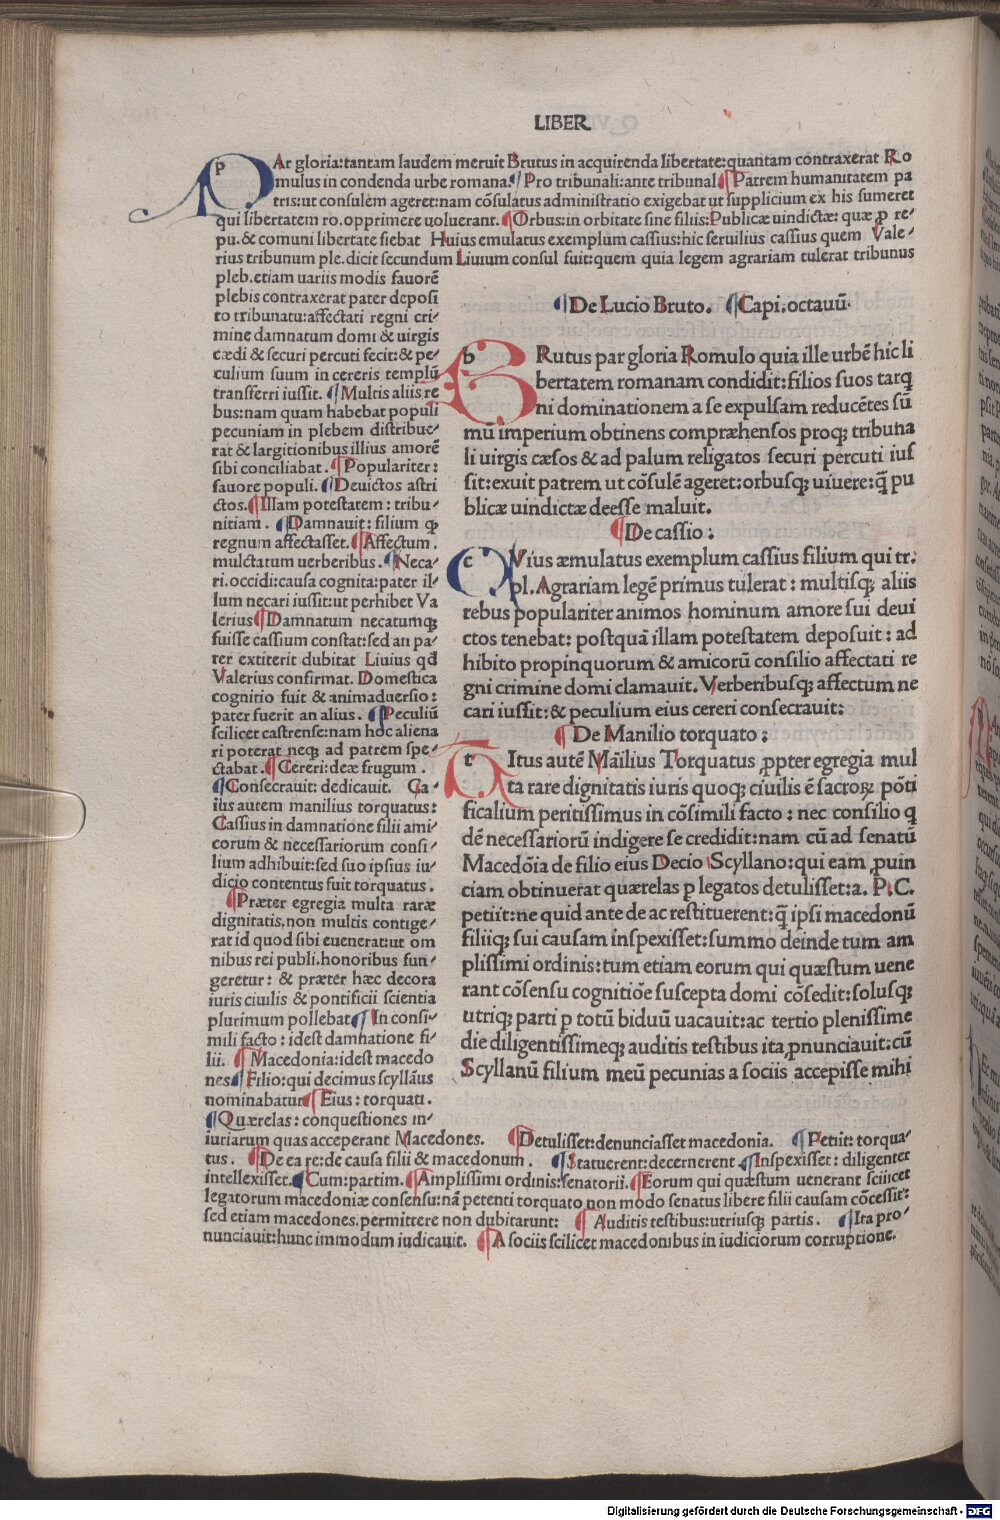 LIBER
PAr gloria:tantam laudem meruit Brutus in acquirenda libertate:quantam contraxerat Ro
mulus in condenda urbe romana.¶ Pro tribunali:ante tribunal¶Patrem humanitatem pa
tris:ut consulem ageret:nam cōsulatus administratio exigebat ut supplicium ex his sumeret
qui libertatem ro.opprimere uoluerant.¶Orbus:in orbitate sine filiis:Publicæ uindictæ: quæ p re⸗
pu.& comuni libertate fiebat Huius emulatus exemplum cassius:hic seruilius cassius quem Vale⸗
rius tribunum ple.dicit secundum Liuium consul fuit:quem quia legem agrariam tulerat tribunus
pleb.etiam uariis modis fauorē
plebis contraxerat pater deposi
to tribunatu:affectati regni cri⸗
mine damnatum domi & uirgis
cædi & securi percuti fecit:& pe⸗
culium suum in cereris templū
transferri iussit. ¶Multis aliis re
bus:nam quam habebat populi
pecuniam in plebem distribue⸗
rat & largitionibus illius amorē
sibi conciliabat. ¶Populariter:
fauore populi. ¶Deuictos astri
ctos.¶Illam potestatem: tribu⸗
nitiam. ¶Damnauit: filium ꝙ
regnum affectasset.¶Affectum.
mulctatum uerberibus. ¶Neca⸗
ri.occidi:causa cognita:pater il⸗
lum necari iussit:ut perhibet Va
lerius¶Damnatum necatumqꝫ
fuisse cassium constat:sed an pa⸗
ter extiterit dubitat Liuius qd
Valerius confirmat. Domestica
cognitio fuit & animaduersio:
pater fuerit an alius. ¶Peculiū
scilicet castrense:nam hoc aliena
ri poterat neqꝫ ad patrem spe⸗
ctabat.¶Cereri:deæ frugum.
¶Consecrauit: dedicauit. Ca⸗
ius autem manilius torquatus:
Cassius in damnatione filii ami⸗
corum & necessariorum consi⸗
lium adhibuit:sed suo ipsius iu⸗
dicio contentus fuit torquatus.
¶Præter egregia multa raræ
dignitatis,non multis contige⸗
rat id quod sibi euenerat:ut om
nibus rei publi.honoribus fun⸗
geretur: & præter hæc decora
iuris ciuilis & pontificii scientia
plurimum pollebat¶ In consi⸗
mili facto: idest damnatione fi⸗
lii. ¶ Macedonia:idest macedo
nes¶ Filio:qui decimus scyllāus
nominabatur¶ Eius: torquati.
¶Quærelas: conquestiones in⸗
iuriarum quas acceperant Macedones. ¶Detulisset:denunciasset macedonia. ¶ Petiit: torqua⸗
tus. ¶De ea re:de causa filii & macedonum. ¶Statuerent:decernerent.¶Inspexisset: diligenter
intellexisset.¶Cum:partim.¶Amplissimi ordinis:senatorii.¶Eorum qui quæstum uenerant scilicet
legatorum macedoniæ consensu:nā petenti torquato non modo senatus libere filii causam cōcessit:
sed etiam macedones.permittere non dubitarunt: ¶ Auditis testibus:utriusqꝫ partis. ¶Ita pro⸗
nunciauit:hunc immodum iudicauit. ¶A sociis scilicet macedonibus in iudiciorum corruptione.
¶De Lucio Bruto. ¶Capi.octauū
bRutus par gloria Romulo quia ille urbē hic li
bertatem romanam condidit:filios suos tarq
ni dominationem a se expulsam reducētes sū
mū imperium obtinens compræhensos proqꝫ tribuna
li uirgis cæsos & ad palum religatos securi percuti ius
sit:exuit patrem ut cōsulē ageret:orbusqꝫ uiuere:q̄ pu
blicæ uindictæ deesse maluit.
¶De cassio:
cVius æmulatus exemplum cassius filium qui tr.
pl.Agrariam legē primus tulerat: multisqꝫ aliis
rebus populariter animos hominum amore sui deui
ctos tenebat: postquā illam potestatem deposuit: ad
hibito propinquorum & amicorū consilio affectati re
gni crimine domi clamauit. Verberibusqꝫ affectum ne
cari iussit:& peculium eius cereri consecrauit:
¶ De Manilio torquato:
tItus autē Māilius Torquatus ꝓpter egregia mul
ta rare dignitatis iuris quoqꝫ ciuilis ē sacroꝝ pōti
ficalium peritissimus in cōsimili facto: nec consilio q
dē necessariorū indigere se credidit:nam cū ad senatū
Macedōia de filio eius Decio Scyllano:qui eam ꝓuin
ciam obtinuerat quærelas p legatos detulisset:a. P.C.
petiit:ne quid ante de ac restituerent:q̄ ipsi macedonū
filiiqꝫ sui causam inspexisset:summo deinde tum am
plissimi ordinis:tum etiam eorum qui quæstum uene
rant cōsensu cognitiōe suscepta domi cōsedit:solusqꝫ
utriqꝫ parti p totū biduū uacauit:ac tertio plenissime
die diligentissimeqꝫ auditis testibus ita ꝓnunciauit:cū
Scyllanū filium meū pecunias a sociis accepisse mihi
Digitalisierung gefördert durch die Deutsche Forschungsgemeinschaft - DFG